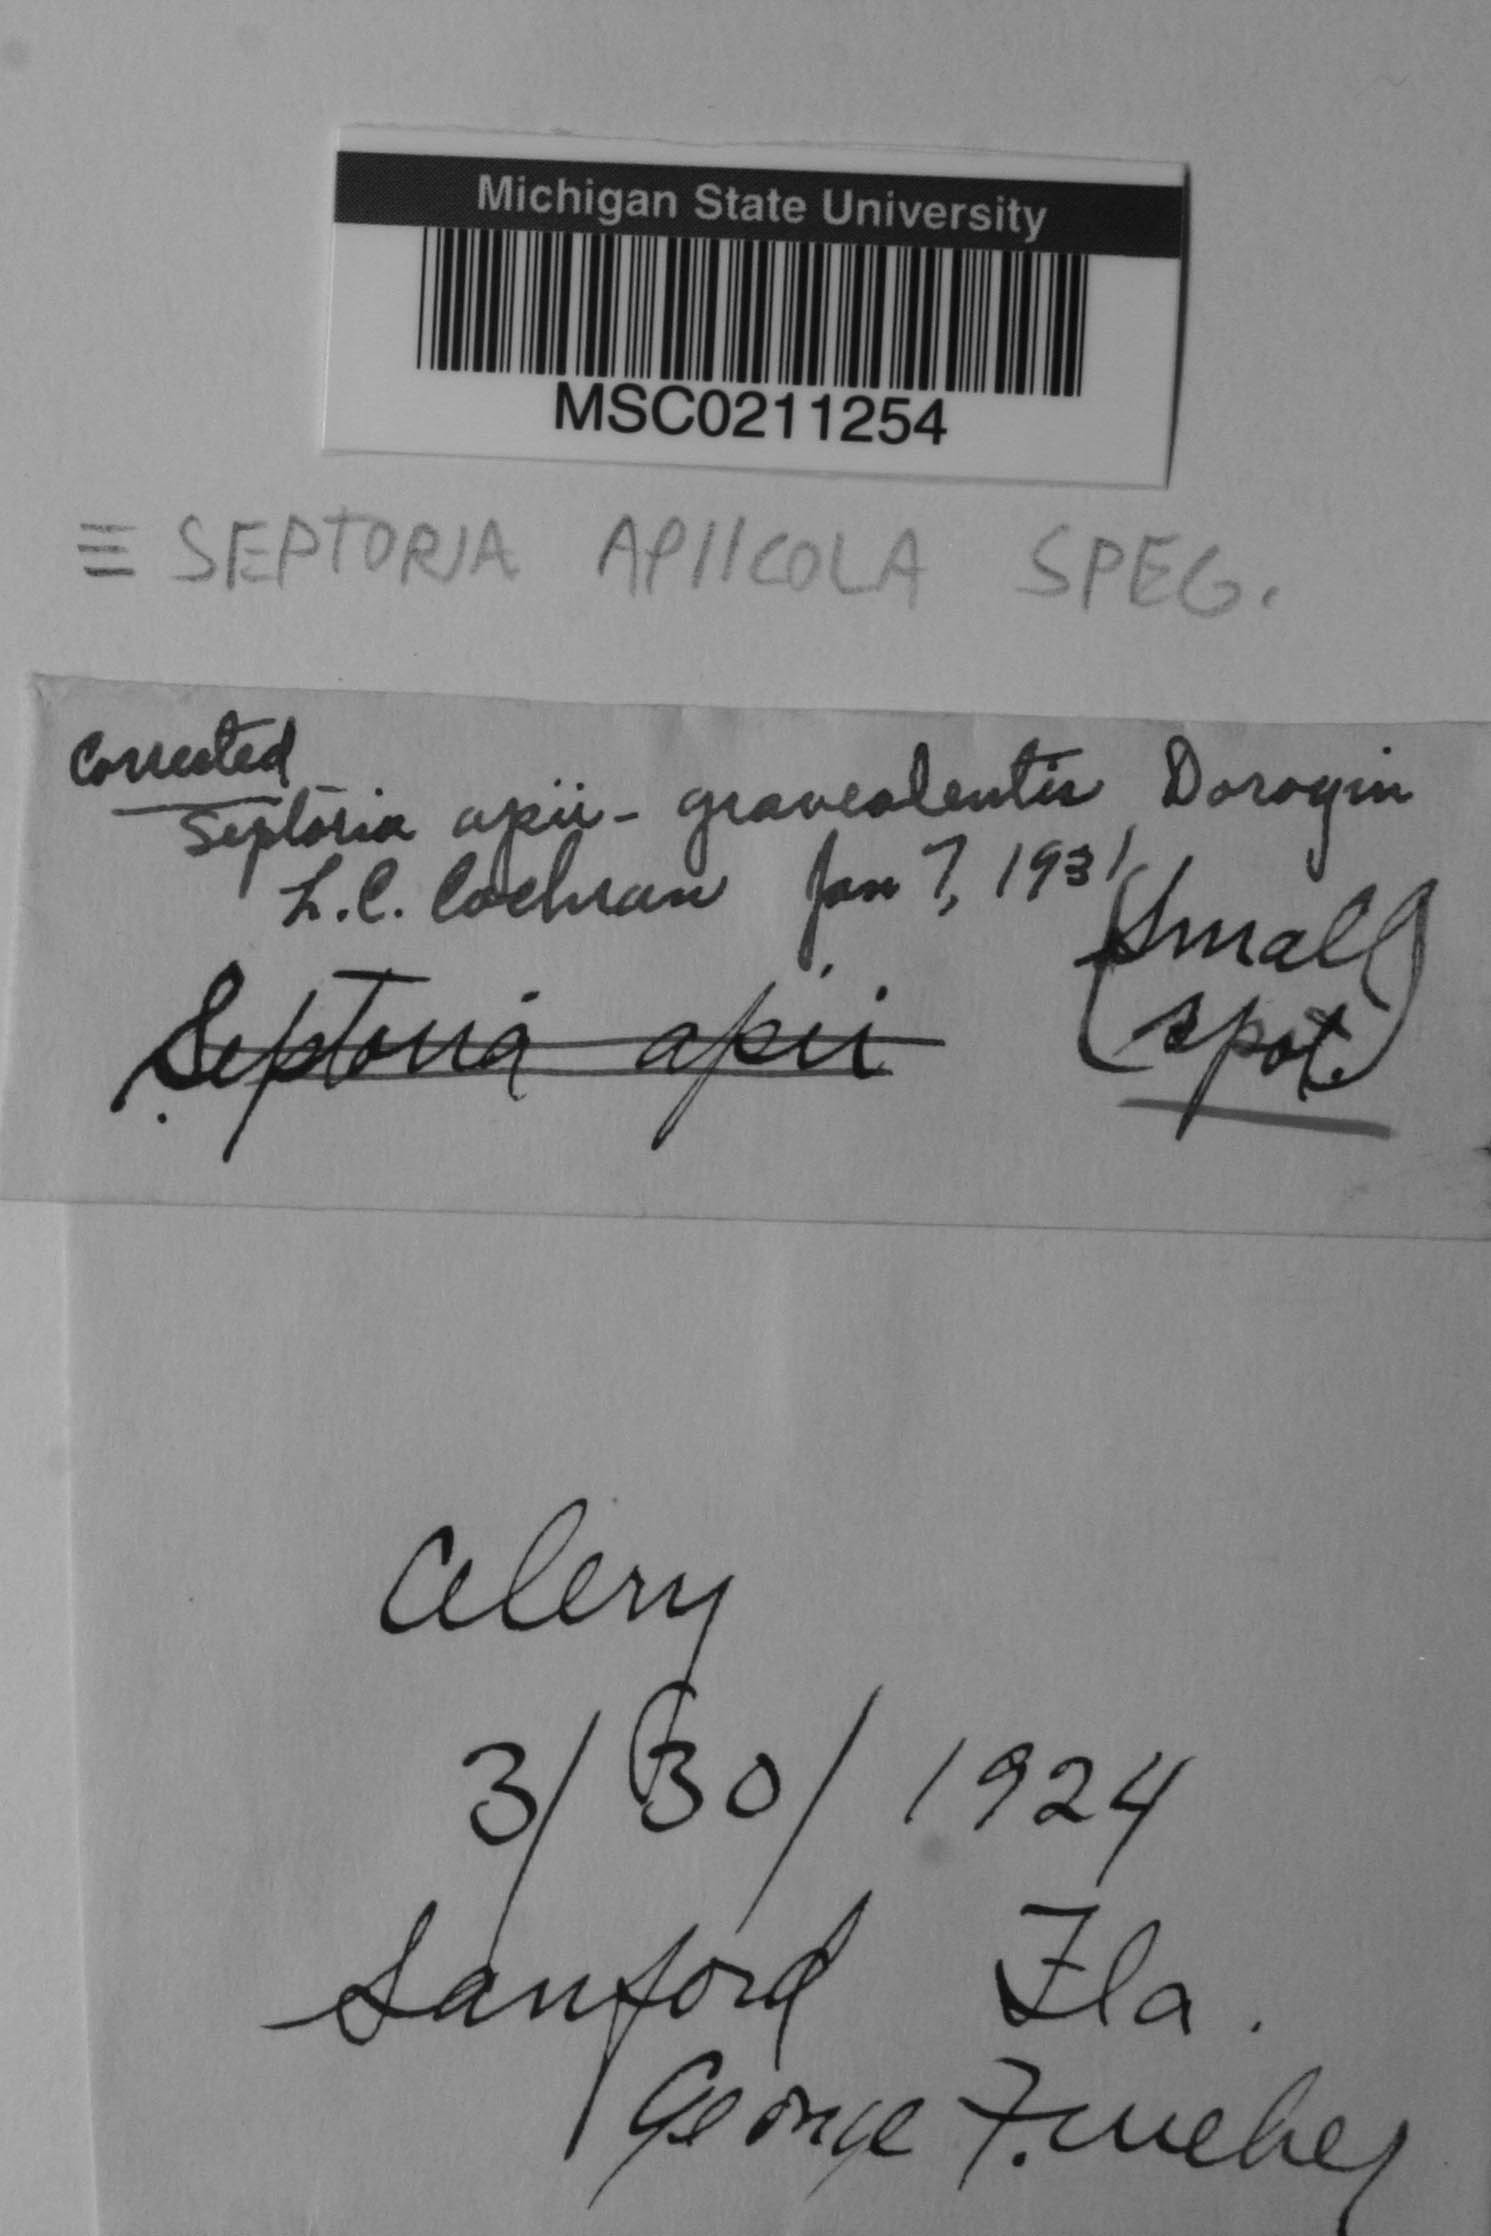 Michigan State University
MSC0211254
≡ SEPTORIA APIICOLA SPEG.
Corrected
Septoria apii-graveolentis Dorogin
L.C. Cochran Jan 7, 1931
Septoria apii (Small
spot)
Celery
3/30/1924
Sanford Fla.
George F. Weber